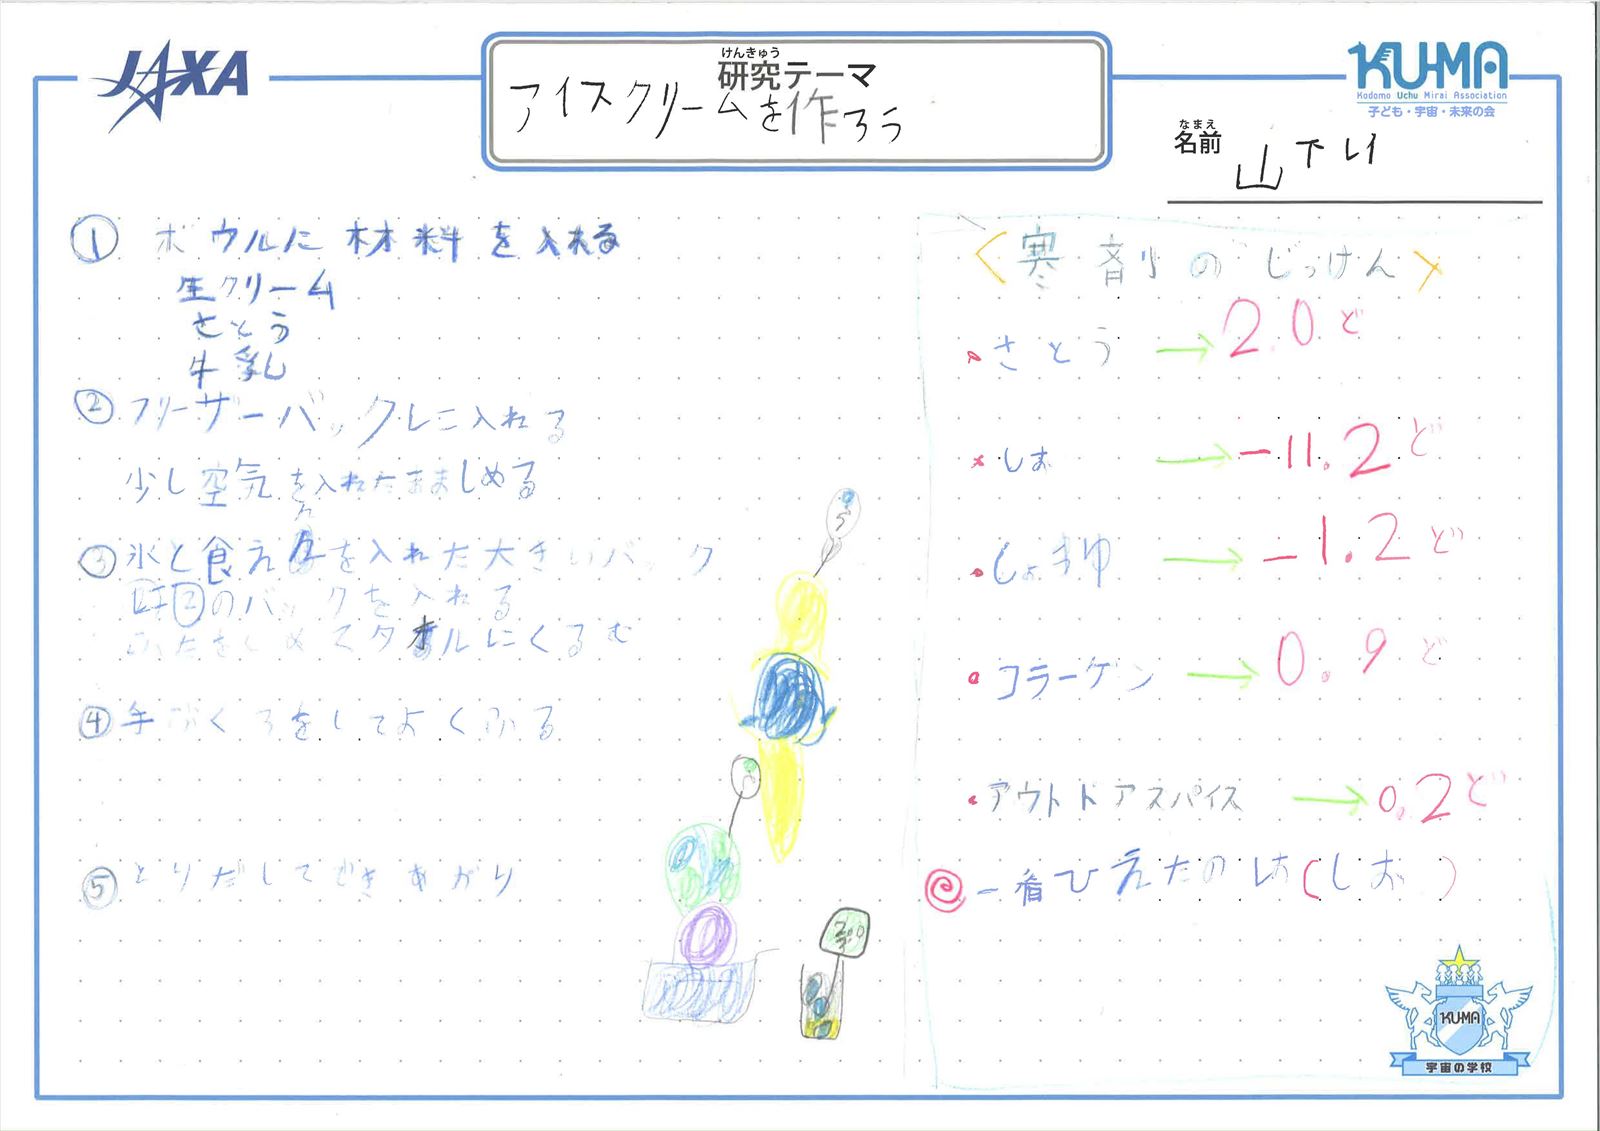 JAXA
けんきゅう
研究テーマ
アイスクリームを作ろう
KU-MA
Kodomo Uchu Mirai Association
子ども・宇宙・未来の会
なまえ
名前
山下
① ボウルに材料を入れる
生クリーム
さとう
牛乳
② フリーザーバックに入れる
少し空気を入れたまましめる
③ 氷と食え を入れた大きいバック
②のバックを入れる
ふたをしめてタオルにくるむ
④ 手ぶくろをしてよくふる
⑤ とりだしてできあがり
<寒剤のじっけん>
・さとう → 2.0ど
・しお → -11.2ど
・しょうゆ → -1.2ど
・コラーゲン → 0.9ど
・アウトドアスパイス → 0.2ど
一番ひえたのは(しお)
KU-MA
宇宙の学校